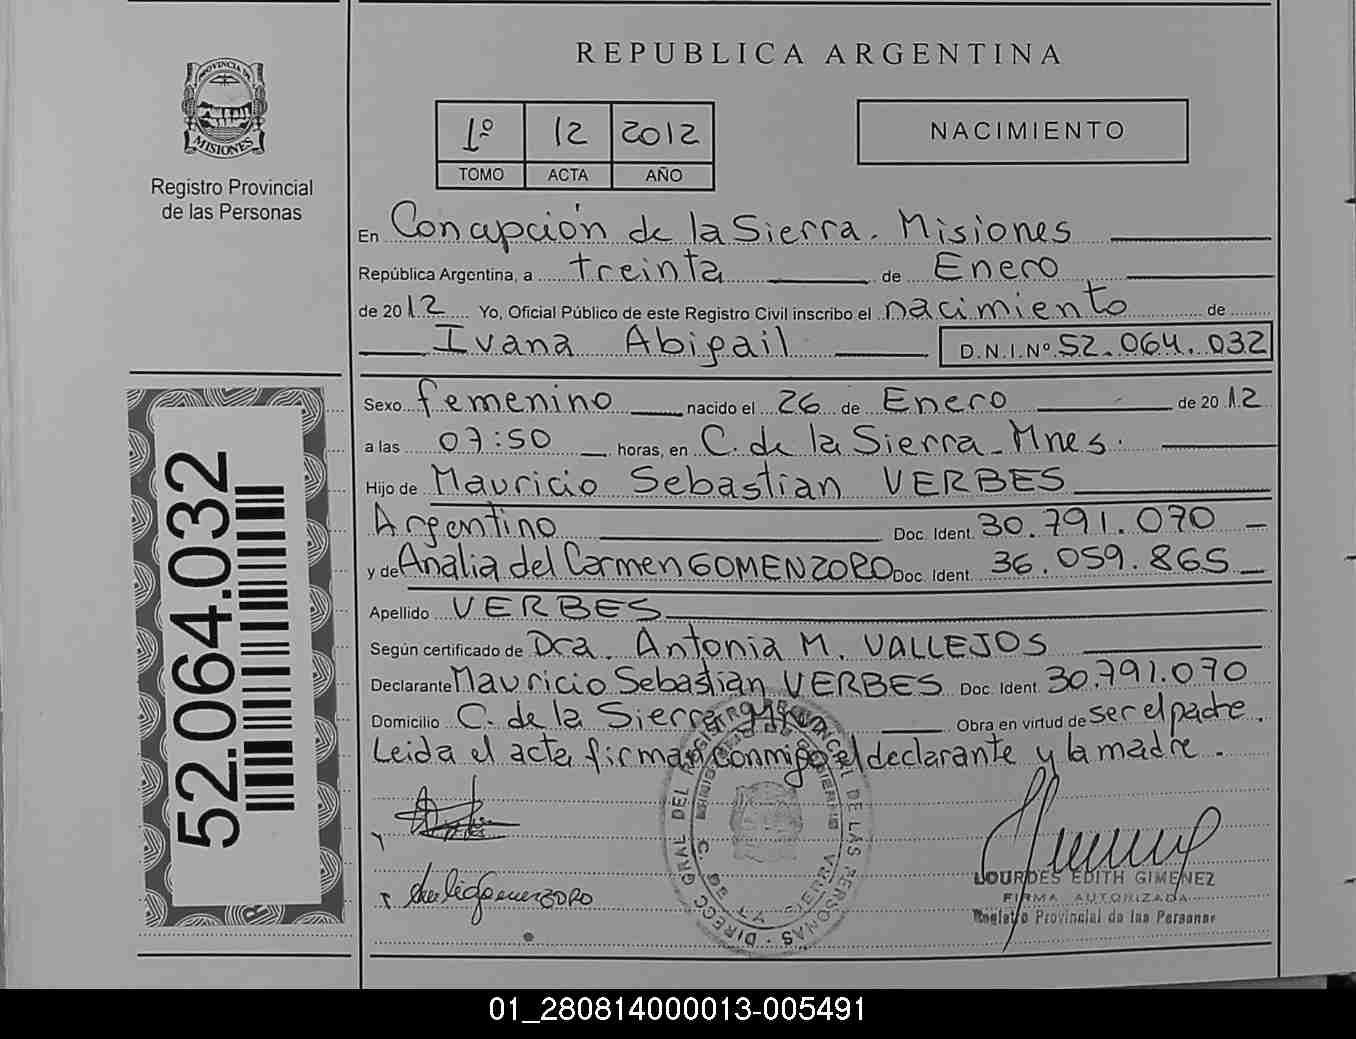 REPUBLICA ARGENTINA
PROVINCIA DE
MISIONES
Registro Provincial
de las Personas
1º 12 2012
TOMO ACTA AÑO
NACIMIENTO
En Concepción de la Sierra. Misiones
República Argentina, a treinta de Enero
de 2012 Yo, Oficial Público de este Registro Civil inscribo el nacimiento de
Ivana Abigail D.N.I.Nº 52.064.032
Sexo femenino nacido el 26 de Enero de 2012
a las 07:50 horas, en C. de la Sierra - Mnes.
Hijo de Mauricio Sebastian VERBES
Argentino Doc. Ident. 30.791.070
y de Analia del Carmen GOMENZORO Doc. Ident. 36.059.865
Apellido VERBES
Según certificado de Dra. Antonia M. VALLEJOS
Declarante Mauricio Sebastian VERBES Doc. Ident. 30.791.070
Domicilio C. de la Sierra Obra en virtud de ser el padre.
Leida el acta firman conmigo el declarante y la madre.
52.064.032
DIRECC GRAL DEL REGISTRO PROVINCIAL DE LAS PERSONAS
C. DE LA SIERRA
LOURDES EDITH GIMENEZ
FIRMA AUTORIZADA
Registro Provincial de las Personas
01_280814000013-005491